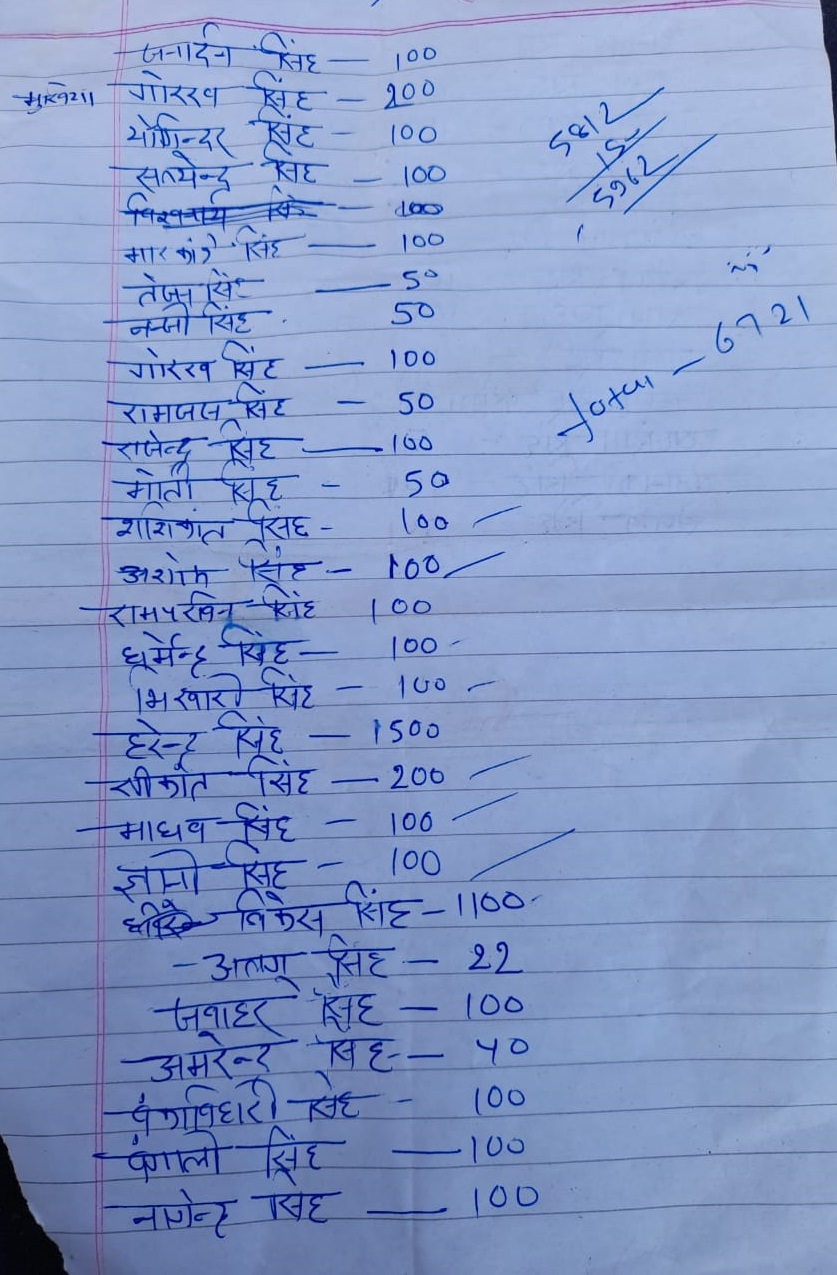 जनार्दन सिंह — 100
मुखिया गोरख सिंह — 200
योगिन्दर सिंह — 100
सत्येन्द्र सिंह — 100
सिंह — 100
मारकांडे सिंह — 100
सिंह — 50
नन्जी सिंह . 50
गोरख सिंह — 100
सिंह — 50
राजेन्द्र सिंह — 100
मोती सिंह - 50
शशिकांत सिंह - 100
अशोक सिंह — 100
सिंह 100
धर्मेन्द्र सिंह — 100
भिखारी सिंह — 100
हरेन्द्र सिंह — 1500
श्रीकांत सिंह — 200
माधव सिंह — 100
ज्ञानी सिंह — 100
विकेस सिंह — 1100
- अलगू सिंह — 22
जवाहर सिंह — 100
अमरेन्द्र सिंह — 40
सिंह - 100
बंगाली सिंह — 100
नागेन्द्र सिंह — 100
5812
150
5962
Total — 6721